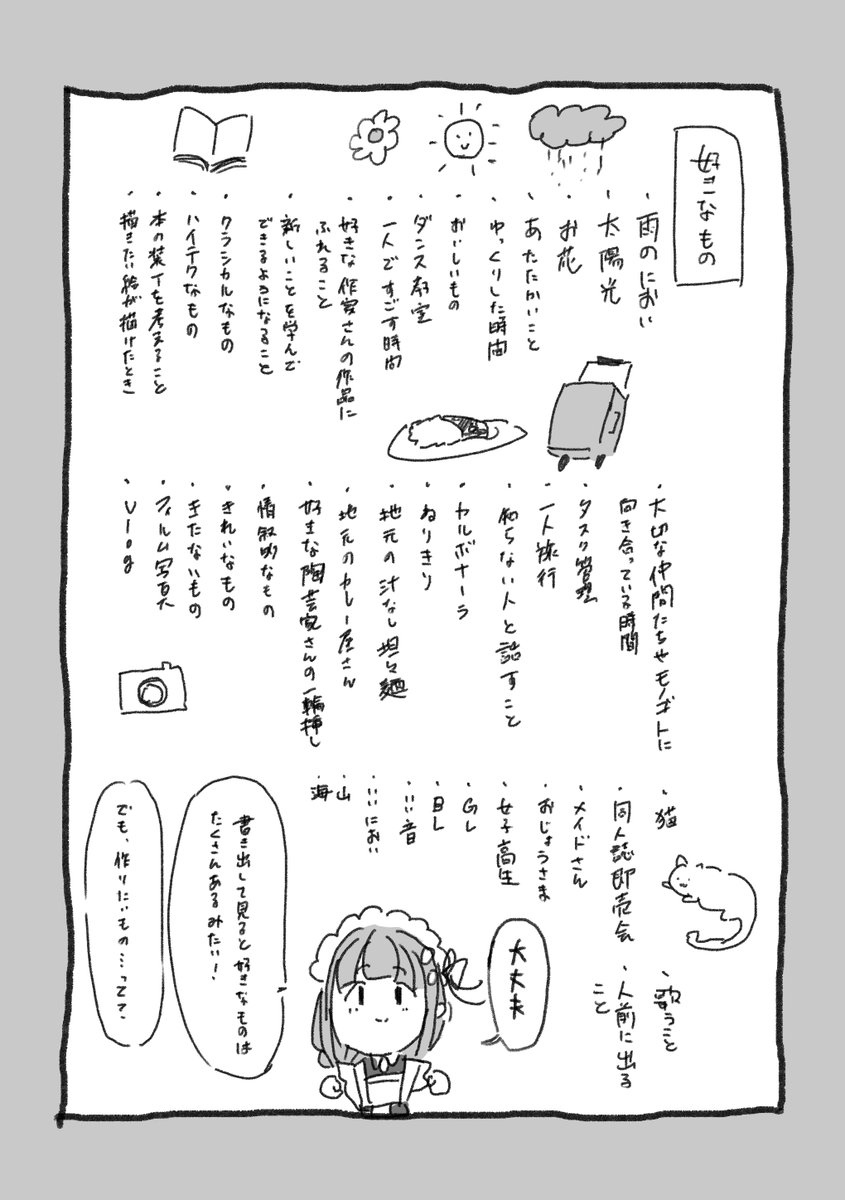 好きなもの
・雨のにおい
・太陽光
・お花
・あたたかいこと
・ゆっくりした時間
・おいしいもの
・ダンス教室
・一人ですごす時間
・好きな作家さんの作品に
ふれること
・新しいことを学んで
できるようになること
・クラシカルなもの
・ハイテクなもの
・本の装丁を考えること
・描きたい絵が描けたとき
・大切な仲間たちやモノゴトに
向き合っている時間
・タスク管理
・一人旅行
・知らない人と話すこと
・カルボナーラ
・ねりきり
・地元の汁なし坦々麺
・地元のカレー屋さん
・好きな陶芸家さんの一輪挿し
・情叙的なもの
・きれいなもの
・きたないもの
・フィルム写真
・Vlog
・猫
・同人誌即売会
・メイドさん
・おじょうさま
・女子高生
・GL
・BL
・いい音
・いいにおい
・山
・海
・歌うこと
・人前に出る
こと
大丈夫
書き出して見ると好きなものは
たくさんあるみたい！
でも、作りたいもの…って？